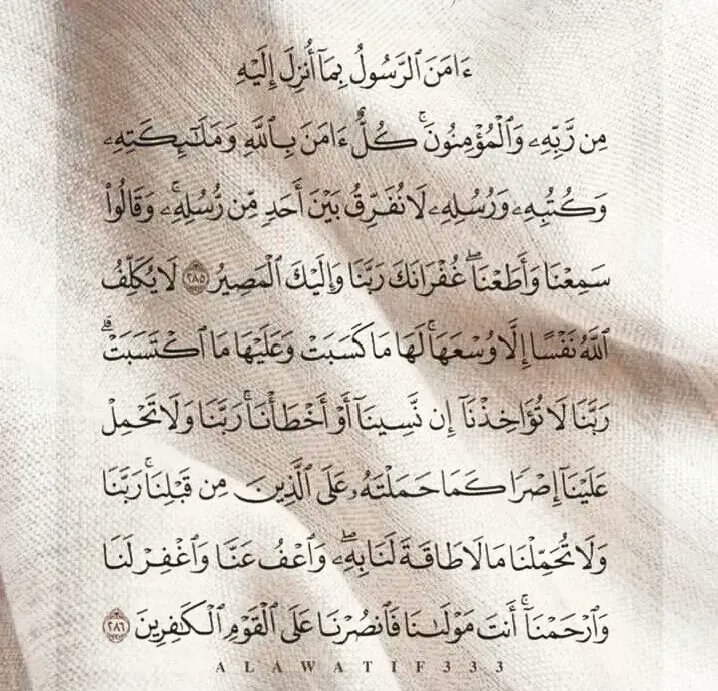 ءَامَنَ ٱلرَّسُولُ بِمَآ أُنزِلَ إِلَيْهِ
مِن رَّبِّهِۦ وَٱلْمُؤْمِنُونَ ۚ كُلٌّ ءَامَنَ بِٱللَّهِ وَمَلَـٰٓئِكَتِهِۦ
وَكُتُبِهِۦ وَرُسُلِهِۦ لَا نُفَرِّقُ بَيْنَ أَحَدٍ مِّن رُّسُلِهِۦ ۚ وَقَالُوا۟
سَمِعْنَا وَأَطَعْنَا ۖ غُفْرَانَكَ رَبَّنَا وَإِلَيْكَ ٱلْمَصِيرُ ٢٨٥ لَا يُكَلِّفُ
ٱللَّهُ نَفْسًا إِلَّا وُسْعَهَا ۚ لَهَا مَا كَسَبَتْ وَعَلَيْهَا مَا ٱكْتَسَبَتْ ۗ
رَبَّنَا لَا تُؤَاخِذْنَآ إِن نَّسِينَآ أَوْ أَخْطَأْنَا ۚ رَبَّنَا وَلَا تَحْمِلْ
عَلَيْنَآ إِصْرًا كَمَا حَمَلْتَهُۥ عَلَى ٱلَّذِينَ مِن قَبْلِنَا ۚ رَبَّنَا
وَلَا تُحَمِّلْنَا مَا لَا طَاقَةَ لَنَا بِهِۦ ۖ وَٱعْفُ عَنَّا وَٱغْفِرْ لَنَا
وَٱرْحَمْنَآ ۚ أَنتَ مَوْلَىٰنَا فَٱنصُرْنَا عَلَى ٱلْقَوْمِ ٱلْكَـٰفِرِينَ ٢٨٦
ALAWATIF333